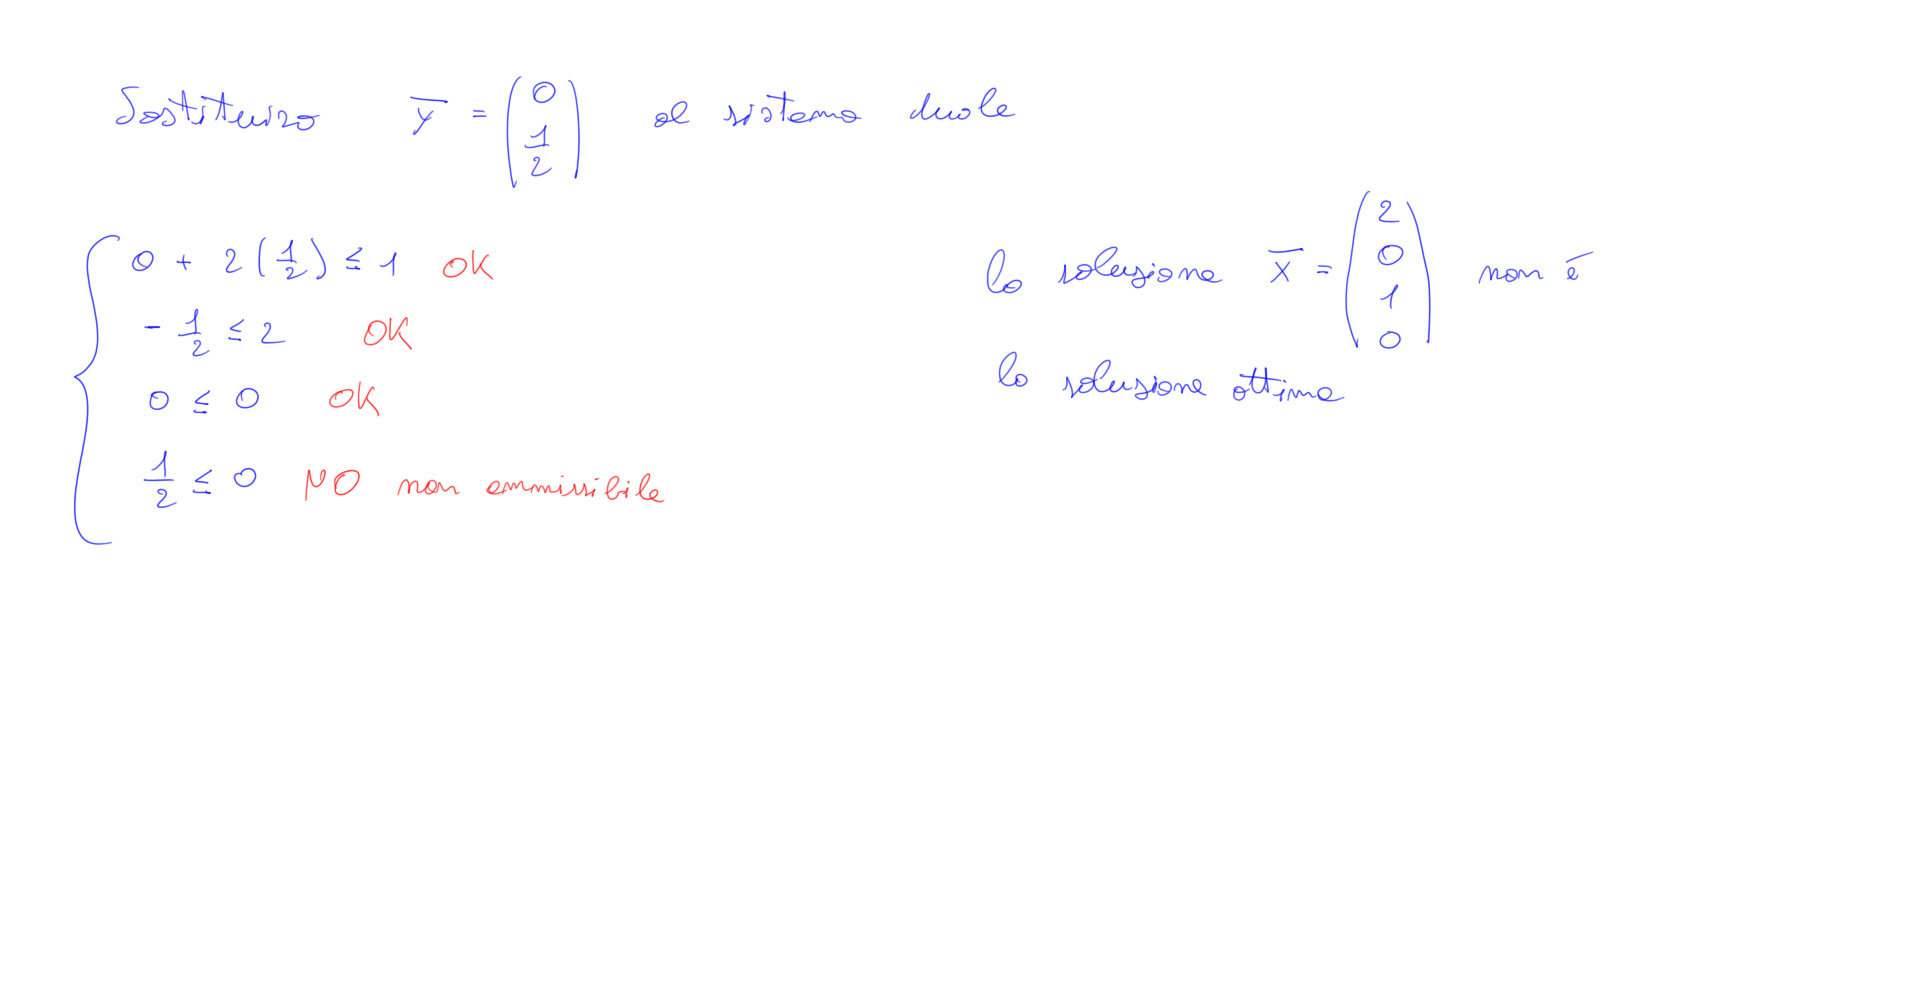 Sostituisco ȳ = (0 1/2) al sistema duale
0 + 2 (1/2) ≤ 1 OK
- 1/2 ≤ 2 OK
0 ≤ 0 OK
1/2 ≤ 0 NO non ammissibile
la soluzione x̄ = (2 0 1 0) non è
la soluzione ottima